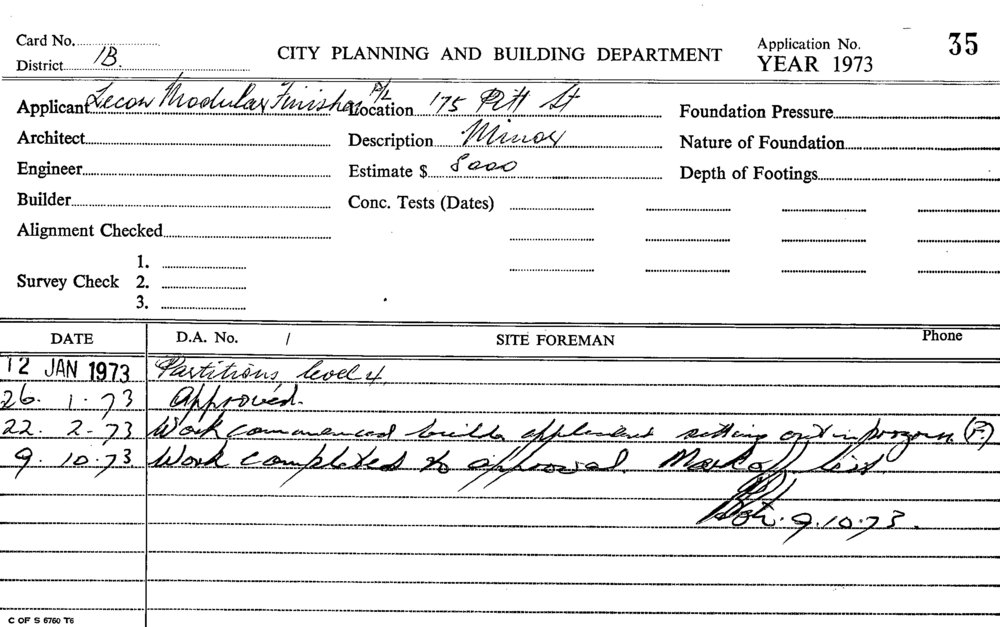 Card No.
District 1B.
CITY PLANNING AND BUILDING DEPARTMENT
Application No. 35
YEAR 1973
Applicant Lecon Modular Finishes P/L Location 175 Pitt St Foundation Pressure
Architect Description Minor Nature of Foundation
Engineer Estimate $ 8000 Depth of Footings
Builder Conc. Tests (Dates)
Alignment Checked
Survey Check 1.
2.
3.
DATE D.A. No. / SITE FOREMAN Phone
12 JAN 1973 Partitions level 4
26. 1. 73 Approved.
22. 2. 73 Work commenced builder applicant setting out in progress
9. 10. 73 Work completed to approval. Mark off list
9.10.73.
C OF S 6760 T6